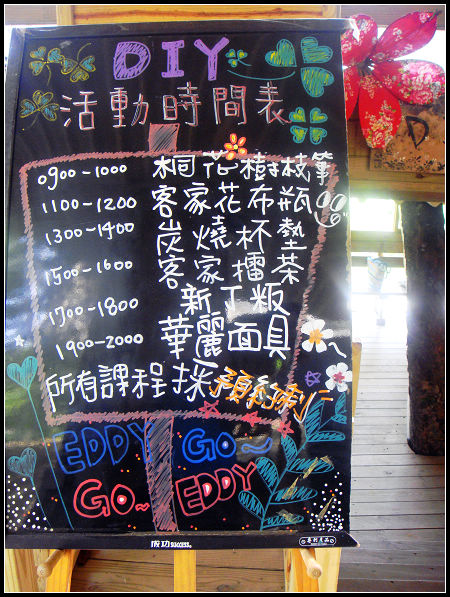 DIY
活動時間表
0900-1000 桐花樹枝筆
1100-1200 客家花布瓶
1300-1400 炭燒杯墊
1500-1600 客家擂茶
1700-1800 新丁粄
1900-2000 華麗面具
所有課程採預約制
EDDY GO~
GO~ EDDY
成功 SUCCESS.
D